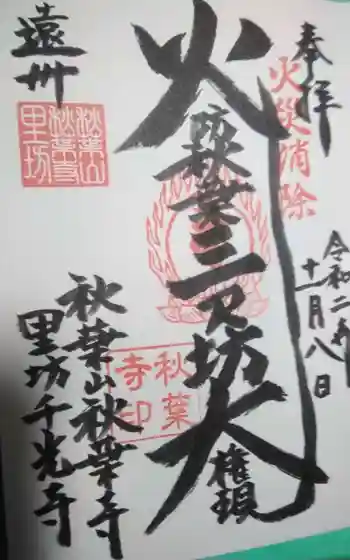 奉拝
火災消除
令和二年
十一月八日
火
防
秋葉三尺坊大
権現
秋葉
寺印
遠州
秋葉山
秋葉寺
里坊
秋葉山秋葉寺
里坊千光寺